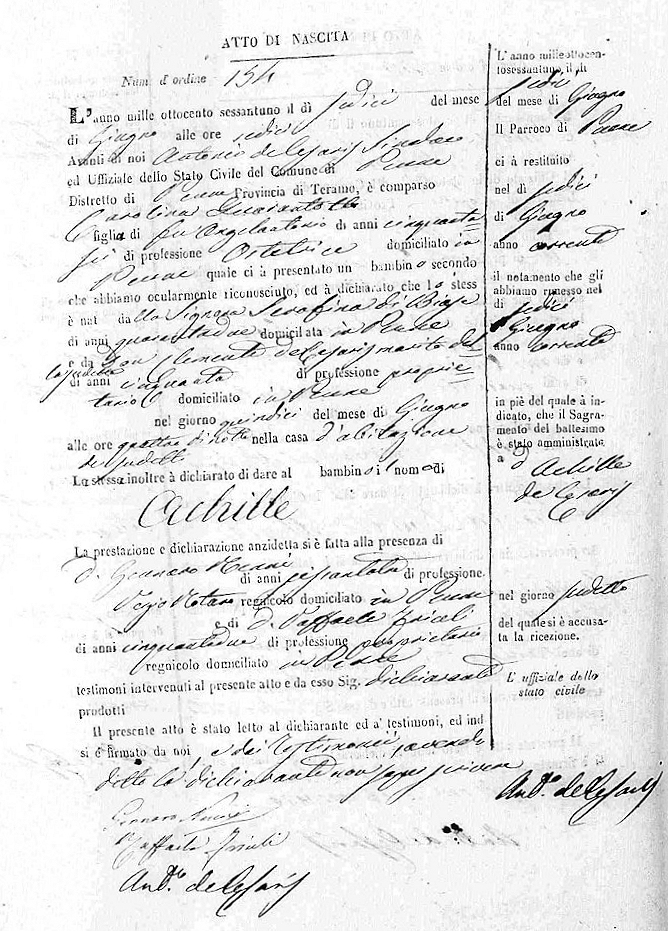 ATTO DI NASCITA
Num. d'ordine 154
L'anno mille ottocento sessantuno il dì sedici del mese
di Giugno alle ore sedici
Avanti di noi Antonio de Cesaris Sindaco
ed Uffiziale dello Stato Civile del Comune di Penne
Distretto di Penne Provincia di Teramo, è comparso
Carolina
figlia di fu di anni cinquanta
sei di professione Ostetrice domiciliato in
Penne quale ci à presentato un bambino secondo
che abbiamo ocularmente riconosciuto, ed à dichiarato che lo stess
è nat dalla Signora Serafina di Biase
di anni quarantadue domiciliata in Penne
e da Don Clemente de Cesaris marito della
suddetta di anni cinquanta di professione proprie
tario domiciliato in Penne
nel giorno quindici del mese di Giugno
alle ore quattro di notte nella casa d'abitazione
dei sudetti
La stessa inoltre à dichiarato di dare al bambino il nome di
Achille
La prestazione e dichiarazione anzidetta si è fatta alla presenza di
D. Gennaro
di anni di professione
Regio Notaro regnicolo domiciliato in Penne
e di D. Raffaele
di anni cinquantadue di professione proprietario
regnicolo domiciliato in Penne
testimoni intervenuti al presente atto e da esso Sig. dichiarante
prodotti
Il presente atto è stato letto al dichiarante ed a' testimoni, ed ind
si è firmato da noi, e dai testimoni, avendo
detto la dichiarante non saper scrivere
Gennaro
Raffaele
Ant.o de Cesaris
L'anno milleottocen-
tosessantuno, il dì
sedici
del mese di Giugno
Il Parroco di Penne
ci à restituito
nel dì sedici
di Giugno
anno corrente
il notamento che gli
abbiamo rimesso nel
dì sedici
Giugno
anno corrente
in piè del quale à in-
dicato, che il Sagra-
mento del battesimo
è stato amministrato
a D. Achille
de Cesaris
nel giorno sudetto
del quale si è accusa-
ta la ricezione.
L' uffiziale dello
stato civile
Ant.o de Cesaris